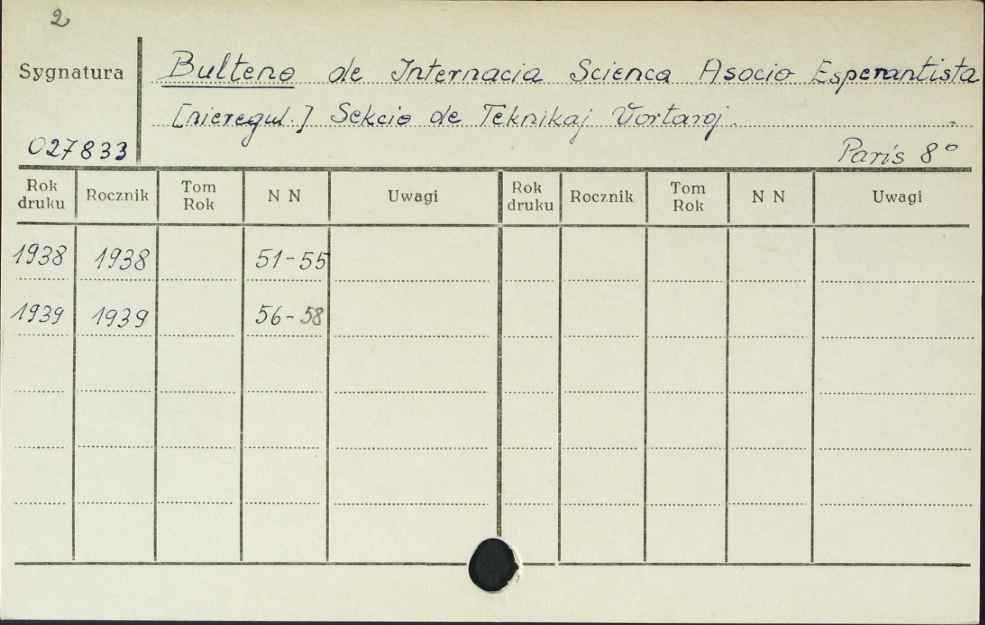 2
Sygnatura
Bulteno de Internacia Scienca Asocio Esperantista
[nieregul.] Sekcio de Teknikaj Vortaroj.
027833
Paris 8°
Rok druku Rocznik Tom Rok N N Uwagi Rok druku Rocznik Tom Rok N N Uwagi
1938 1938 51-55
1939 1939 56-58